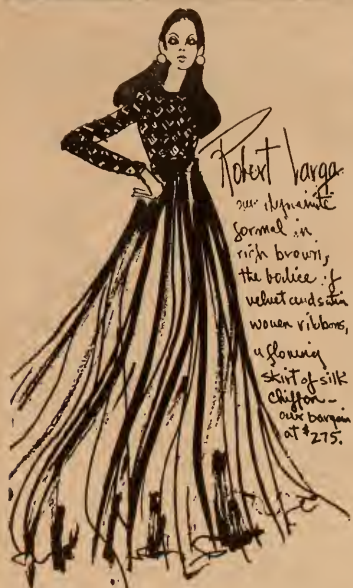 Robert Varga
our dynamite
formal in
rich brown,
the bodice of
velvet and satin
woven ribbons,
a flowing
skirt of silk
chiffon—
our bargain
at $275.